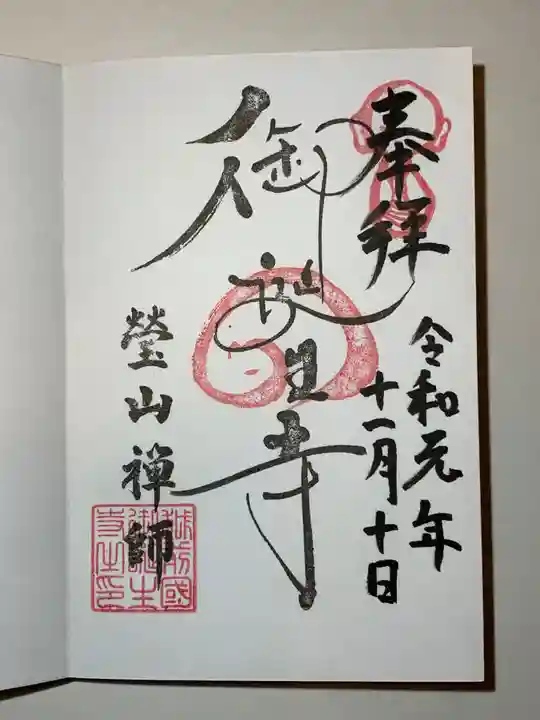 奉拝
令和元年
十一月十日
御誕生寺
瑩山禅師
越前國
御誕生
寺住印